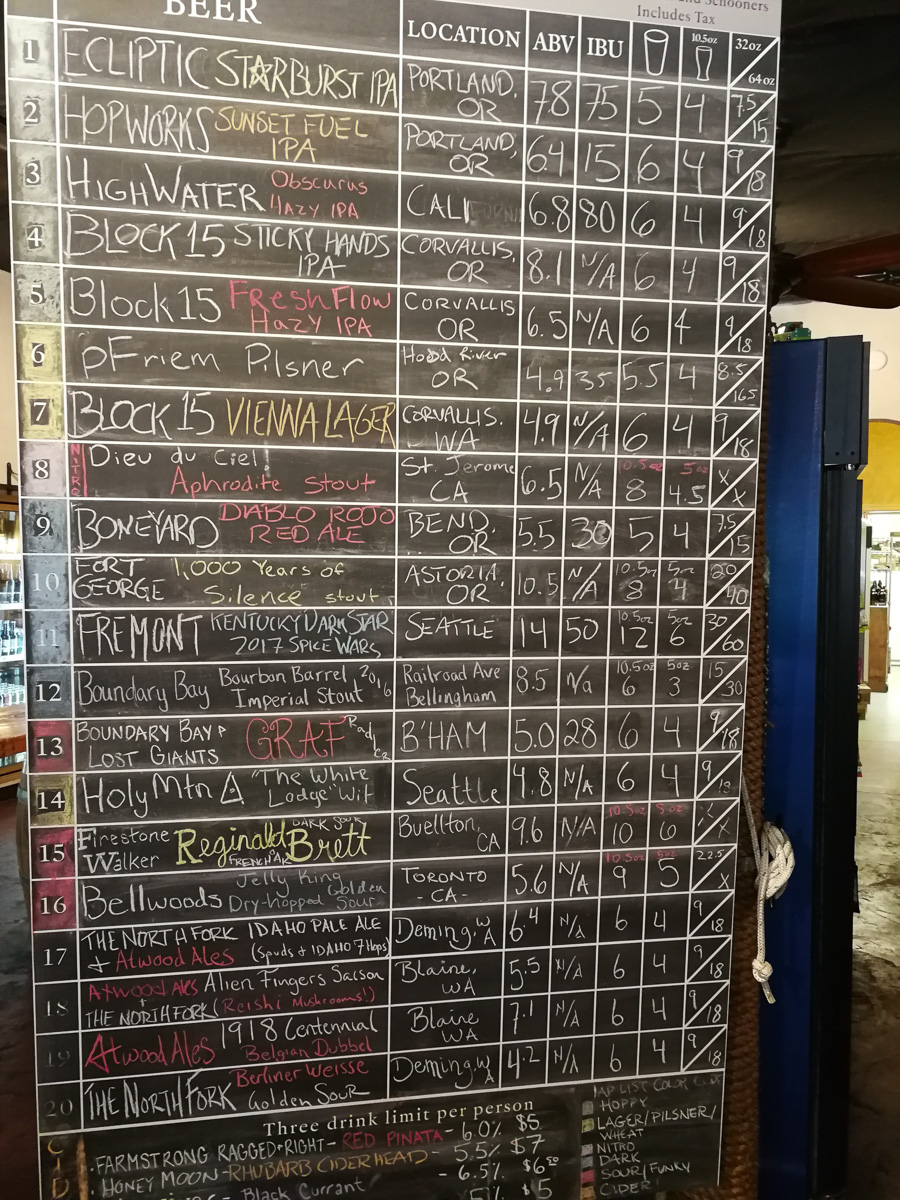 BEER
and Schooners
Includes Tax
LOCATION ABV IBU 10.5oz 32oz 64oz
1 ECLIPTIC STARBURST IPA PORTLAND, OR 7.8 75 5 4 7.5 15
2 HOPWORKS SUNSET FUEL IPA PORTLAND, OR 6.4 15 6 4 9 18
3 HIGHWATER Obscurus HAZY IPA CALIFORNI 6.8 80 6 4 9 18
4 BLOCK 15 STICKY HANDS IPA CORVALLIS, OR 8.1 N/A 6 4 9 18
5 Block 15 Fresh Flow Hazy IPA CORVALLIS OR 6.5 N/A 6 4 9 18
6 pFriem Pilsner Hood River OR 4.9 35 5.5 4 8.5 16.5
7 BLOCK 15 VIENNA LAGER CORVALLIS. WA 4.9 N/A 6 4 9 18
8 NITRO Dieu du Ciel! Aphrodite stout St. Jerome CA 6.5 N/A 10.5oz 8 5oz 4.5 X X
9 BONEYARD DIABLO ROJO RED ALE BEND, OR 5.5 30 5 4 7.5 15
10 FORT GEORGE 1,000 Years of Silence stout ASTORIA, OR 10.5 N/A 10.5oz 8 5oz 4 20 40
11 FREMONT KENTUCKY DARK STAR 2017 SPICE WARS SEATTLE 14 50 10.5oz 12 5oz 6 30 60
12 Boundary Bay Bourbon Barrel 2016 Imperial Stout Railroad Ave Bellingham 8.5 N/a 10.5oz 6 5oz 3 15 30
13 BOUNDARY BAY & LOST GIANTS GRAF B'HAM 5.0 28 6 4 9 18
14 Holy Mtn "The White Lodge" Wit Seattle 4.8 N/A 6 4 9 18
15 Firestone Walker Reginald Brett DARK SOUR Buellton, CA 9.6 N/A 10.5oz 10 5oz 6 X X
16 Bellwoods Jelly King Dry-hopped Golden Sour TORONTO - CA - 5.6 N/A 10.5oz 9 5oz 5 22.5 X
17 THE NORTH FORK + Atwood Ales IDAHO PALE ALE (Spuds + IDAHO 7 Hops) Deming, WA 6.4 N/A 6 4 9 18
18 Atwood Ales + THE NORTH FORK Alien Fingers Saison (Reishi Mushrooms!) Blaine, WA 5.5 N/A 6 4 9 18
19 Atwood Ales 1918 Centennial Belgian Dubbel Blaine WA 7.1 N/A 6 4 9 18
20 THE NORTH FORK Berliner Weisse Golden SouR Deming, WA 4.2 N/A 6 4 9 18
Three drink limit per person
FARMSTRONG RAGGED+RIGHT- RED PINATA - 6.0% $5
HONEY MOON-RHUBARB CIDERHEAD- 5.5% $7
Black Currant - 6.5% $6.50
5% $5
TAP LIST COLOR
HOPPY
LAGER/PILSNER/
WHEAT
NITRO
DARK
SOUR/FUNKY
CIDER!